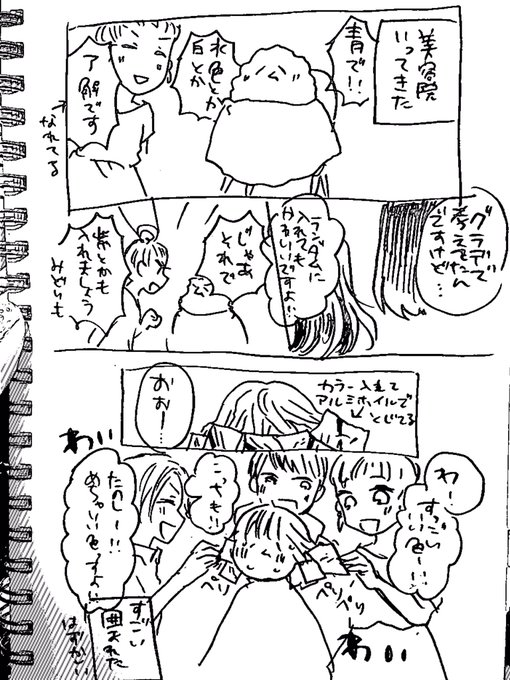 美容院
いってきた
青で!!
水色とか
白とか
了解です
なれてる
グラデで
考えてたん
ですけど…
ランダムに
入れても
かわいいですよ!!
じゃあ
それで
紫とかも
入れましょう
みどりも
カラー入れて
アルミホイルで
とじてる
おおー
わー
すごい
いい色ー!!
わいい
たのしー!!
めちゃいい色ですよ!!
ペリ
ペリペリ
わいい
すごい
囲まれた
はずかしい